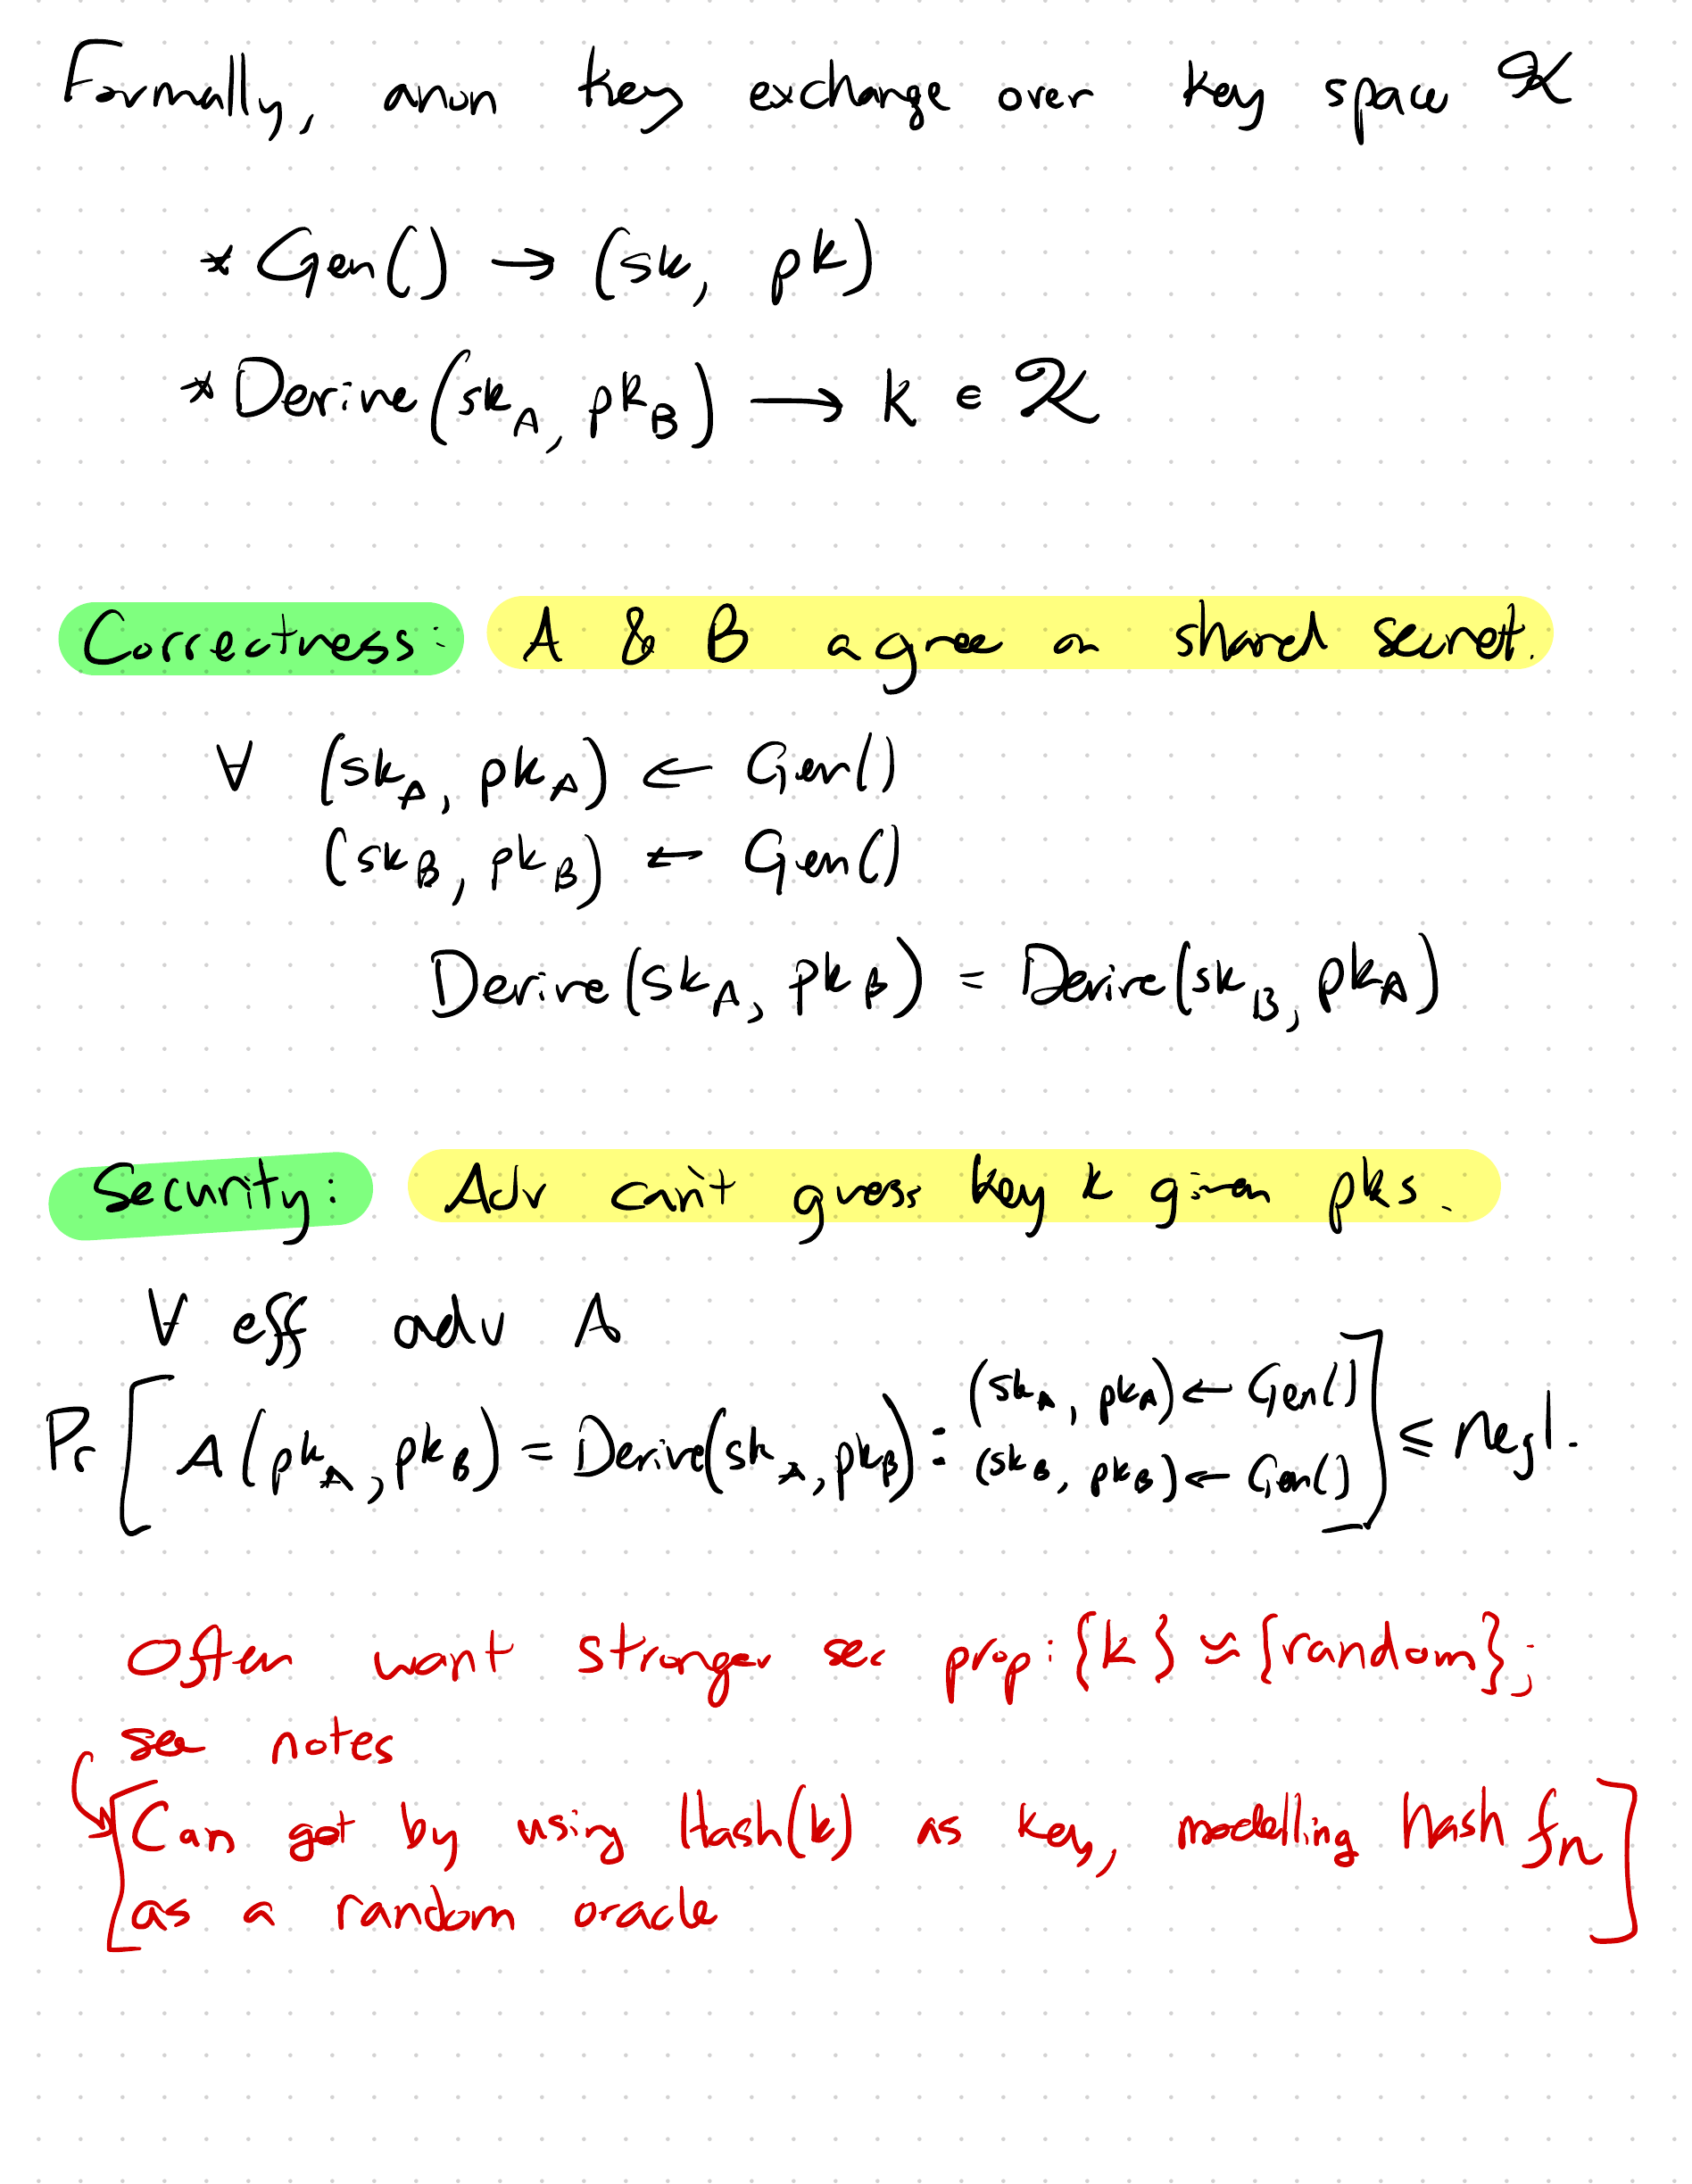 Formally, anon key exchange over key space 𝒦
* Gen() → (sk, pk)
* Derive(sk_A, pk_B) → k ∈ 𝒦
Correctness: A & B agree on shared secret.
∀ (sk_A, pk_A) ← Gen()
(sk_B, pk_B) ← Gen()
Derive(sk_A, pk_B) = Derive(sk_B, pk_A)
Security: Adv can't guess key k given pks.
∀ eff adv A
Pr [ A(pk_A, pk_B) = Derive(sk_A, pk_B) : (sk_A, pk_A) ← Gen() (sk_B, pk_B) ← Gen() ] ≤ negl.
Often want stronger sec prop: {k} ≈ {random};
see notes
[Can get by using Hash(k) as key, modelling hash fn
as a random oracle]